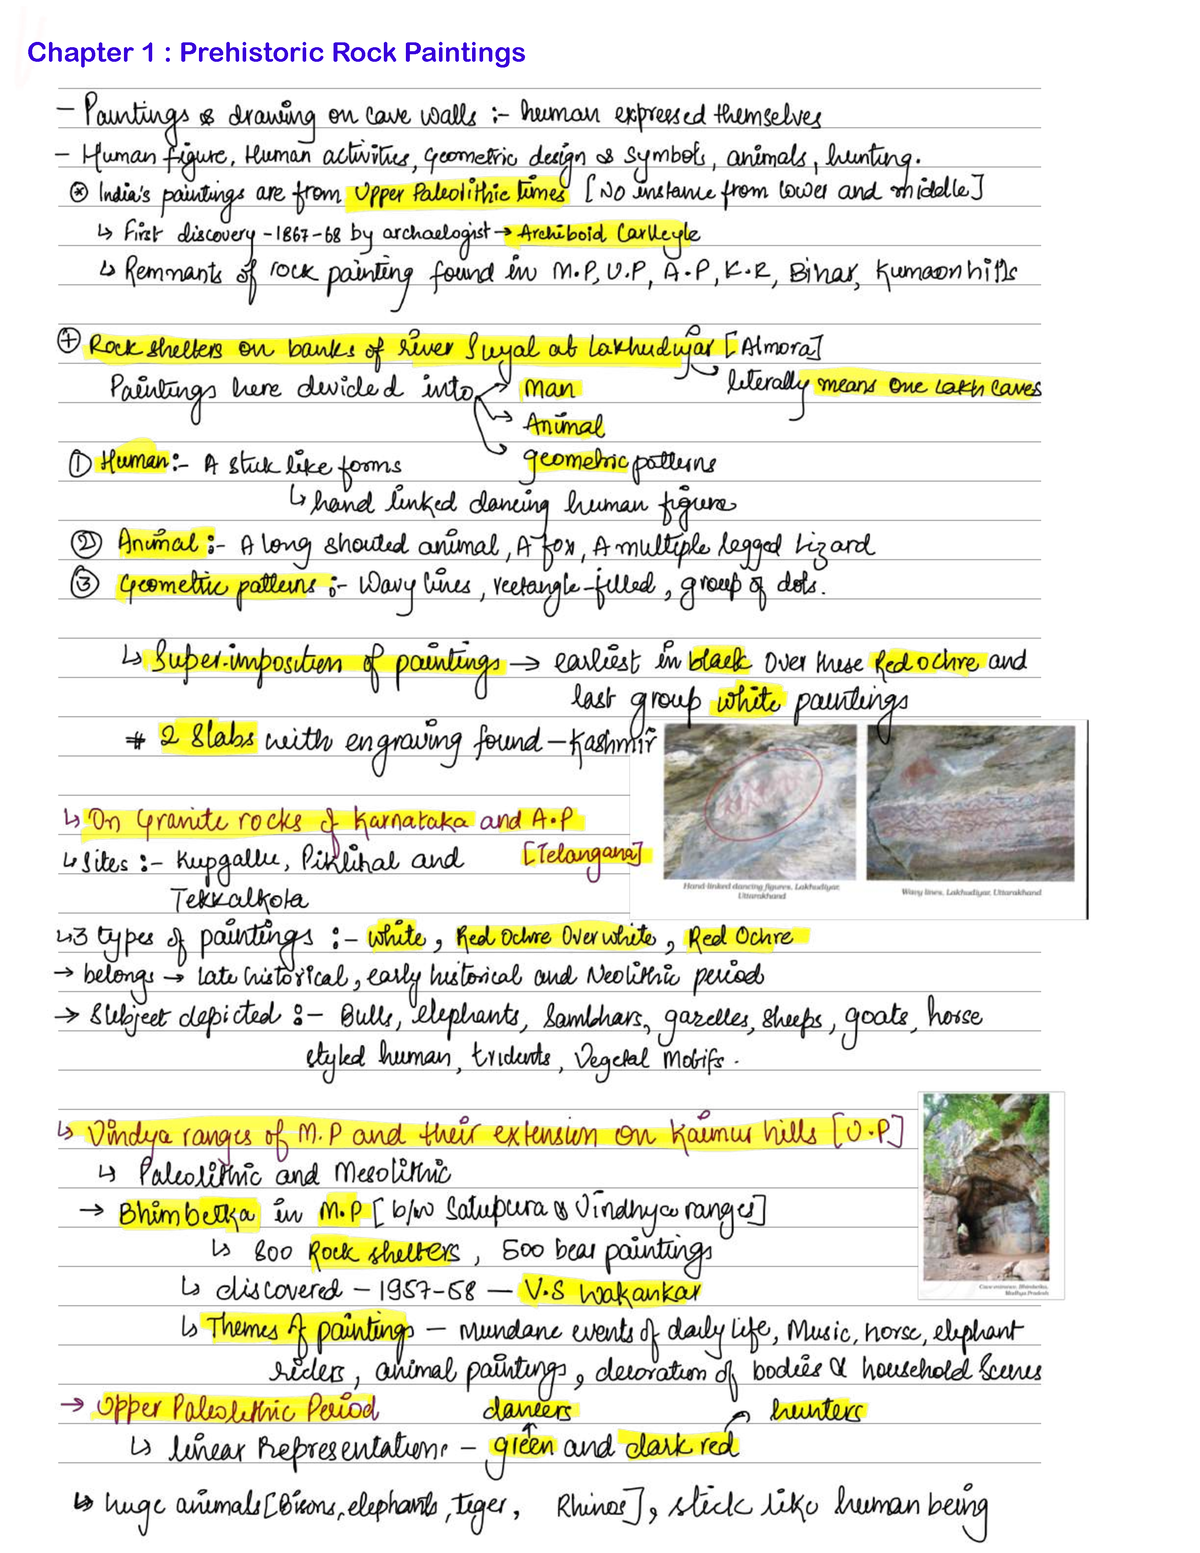 Chapter 1 : Prehistoric Rock Paintings
- Paintings & drawing on cave walls :- human expressed themselves
- Human figure, Human activities, geometric design & symbols, animals, hunting.
⊛ India's paintings are from Upper Paleolithic times [No instance from lower and middle]
↳ First discovery - 1867-68 by archaelogist → Archiboid Carlleyle
↳ Remnants of rock painting found in M.P, U.P, A.P, K.R, Bihar, Kumaon hills
⊕ Rock shelters on banks of river Suyal at Lakhudiyar [Almora]
Paintings here devided into → man
literally means One Lakh Caves
→ Animal
→ geometric patterns
① Human :- A stick like forms
↳ hand linked dancing human figure
② Animal :- A long shouted animal, A fox, A multiple legged Lizard
③ Geometric patterns :- Wavy lines, rectangle-filled, group of dots.
↳ Super-imposition of paintings → earliest in black Over these Red ochre and
last group white paintings
# 2 Slabs with engraving found - Kashmir
Hand-linked dancing figures, Lakhudiyar, Uttarakhand
Wavy lines, Lakhudiyar, Uttarakhand
↳ On Granite rocks of Karnataka and A.P
[Telangana]
↳ Sites :- Kupgallu, Piklihal and
Tekkalkota
↳ 3 types of paintings :- white, Red Ochre Over white, Red Ochre
→ belongs → late historical, early historical and Neolithic period
→ Subject depicted :- Bulls, elephants, Sambhars, gazelles, Sheeps, goats, horse
styled human, tridents, Vegetal Motifs.
↳ Vindya ranges of M.P and their extension on Kaimur hills [U.P]
↳ Paleolithic and Mesolithic
→ Bhimbetka in M.P [b/w Satupura & Vindhya ranges]
↳ 800 Rock shelters, 500 bear paintings
Cave entrance, Bhimbetka, Madhya Pradesh
↳ discovered - 1957-58 - V.S Wakankar
↳ Themes of paintings - Mundane events of daily life, Music, horse, elephant
riders, animal paintings, decoration of bodies & household Scenes
→ Upper Paleolithic Period
dancers
hunters
↳ linear Representations - green and dark red
↳ huge animals [Bisons, elephants, tiger, Rhinos], stick like human being